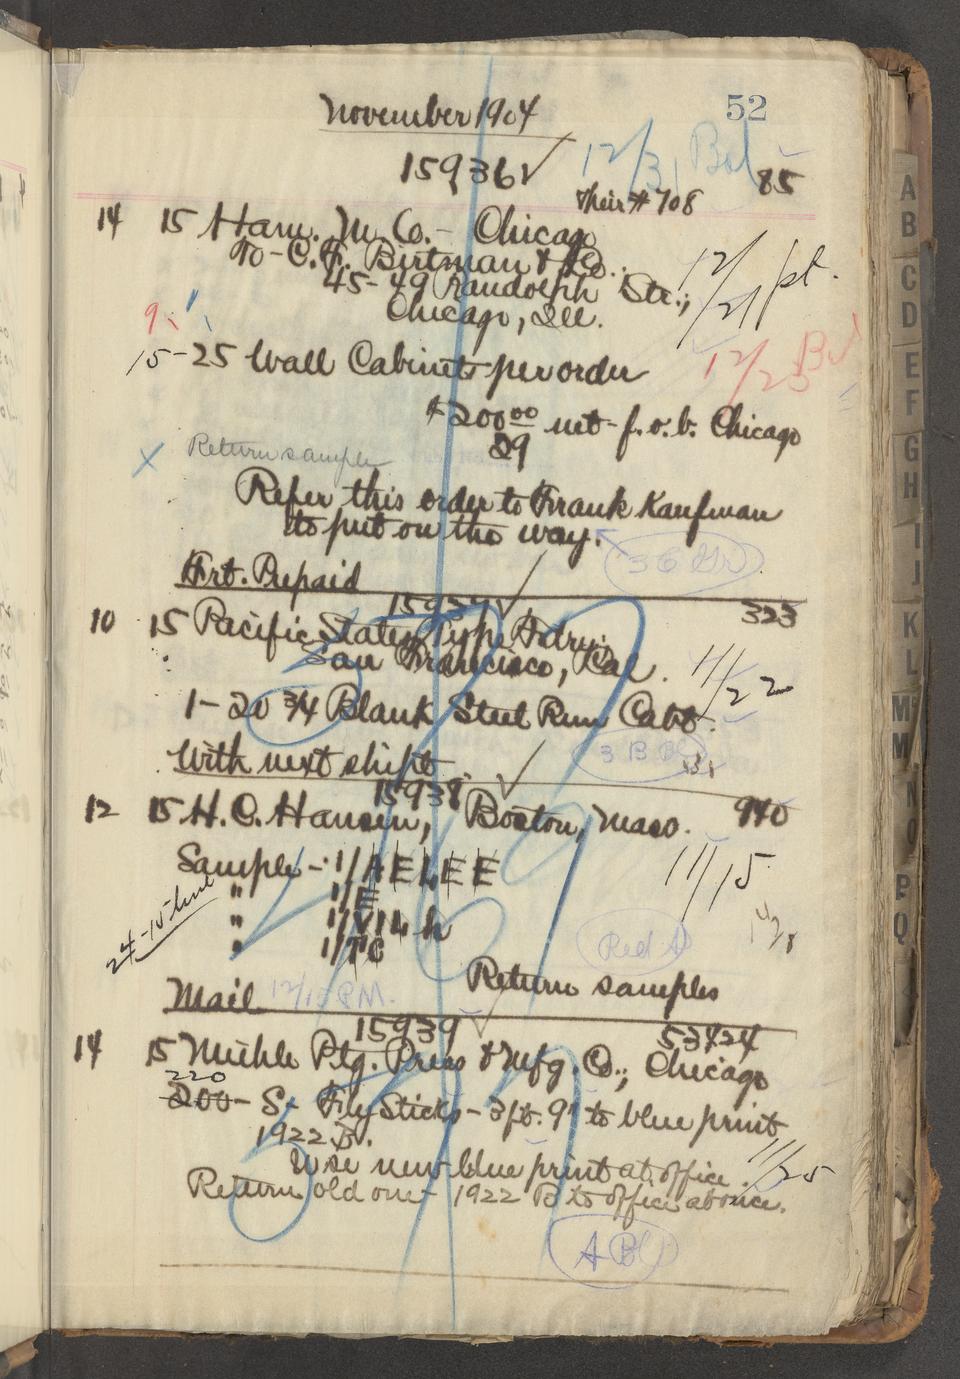 52
November 1904
15936 ✓ 12/31 Bal 85
Their # 708
14 15 Ham. M. Co. - Chicago
To - C. F. Birtman & Co.,
45-49 Randolph Str.,
Chicago, Ill.
12/21 pt.
9
15-25 Wall Cabinets per order
12/23 Bal
$200 00 net - f. o. b. Chicago
29
x Return sample
Refer this order to Frank Kaufman
to put on the way.
36
Frt. Prepaid
15937 ✓ 323
10 15 Pacific States Type Fdry.
San Francisco, Cal.
11/22
1-20 3/4 Blank Steel Run Cabt.
3 B
With next shipt.
15938 ✓ 940
12 15 H. C. Hansen, Boston, Mass.
Sample - 1/A E L E E
11/15
" 1/E
" 1/V I L h
" 1/T C
24-15 line
Red
Return samples
Mail 12/15 P.M.
15939 ✓ 53424
14 15 Miehle Ptg. Press & Mfg. Co., Chicago
220
200 - S - Fly Sticks - 3 ft. 9" to blue print
1922 B.
Use new blue print at office.
11/25
Return old one - 1922 B to office at once.
A B